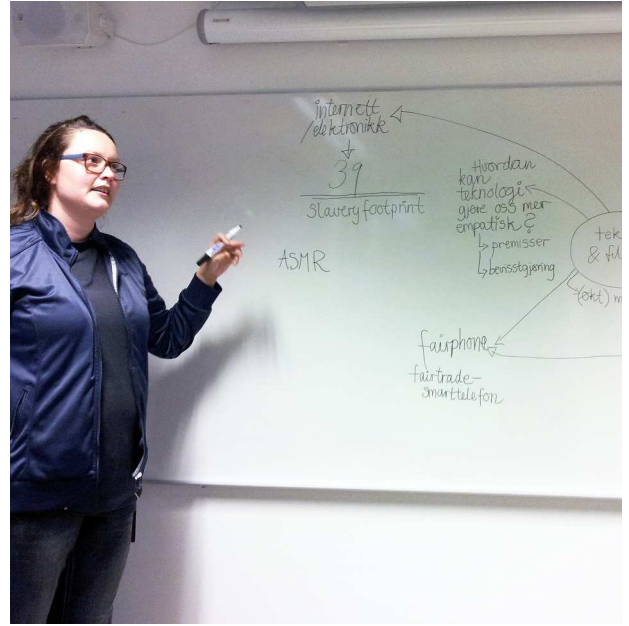 internett
/elektronikk
39
slaveryfootprint
ASMR
Hvordan
kan
teknologi
gjøre oss mer
empatisk?
premisser
bevisstgjøring
tek
& fil
(økt) m
fairphone
fairtrade-
smarttelefon